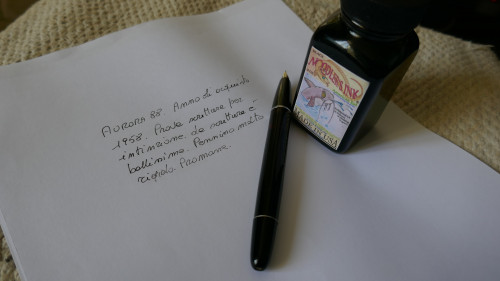 AURORA 88 Anno di acquisto
1958. Prova scrittura per
intinzione. La scrittura è
bellissima. Pennino molto
rigido. Promossa.
NOODLER'S INK
MADE IN USA